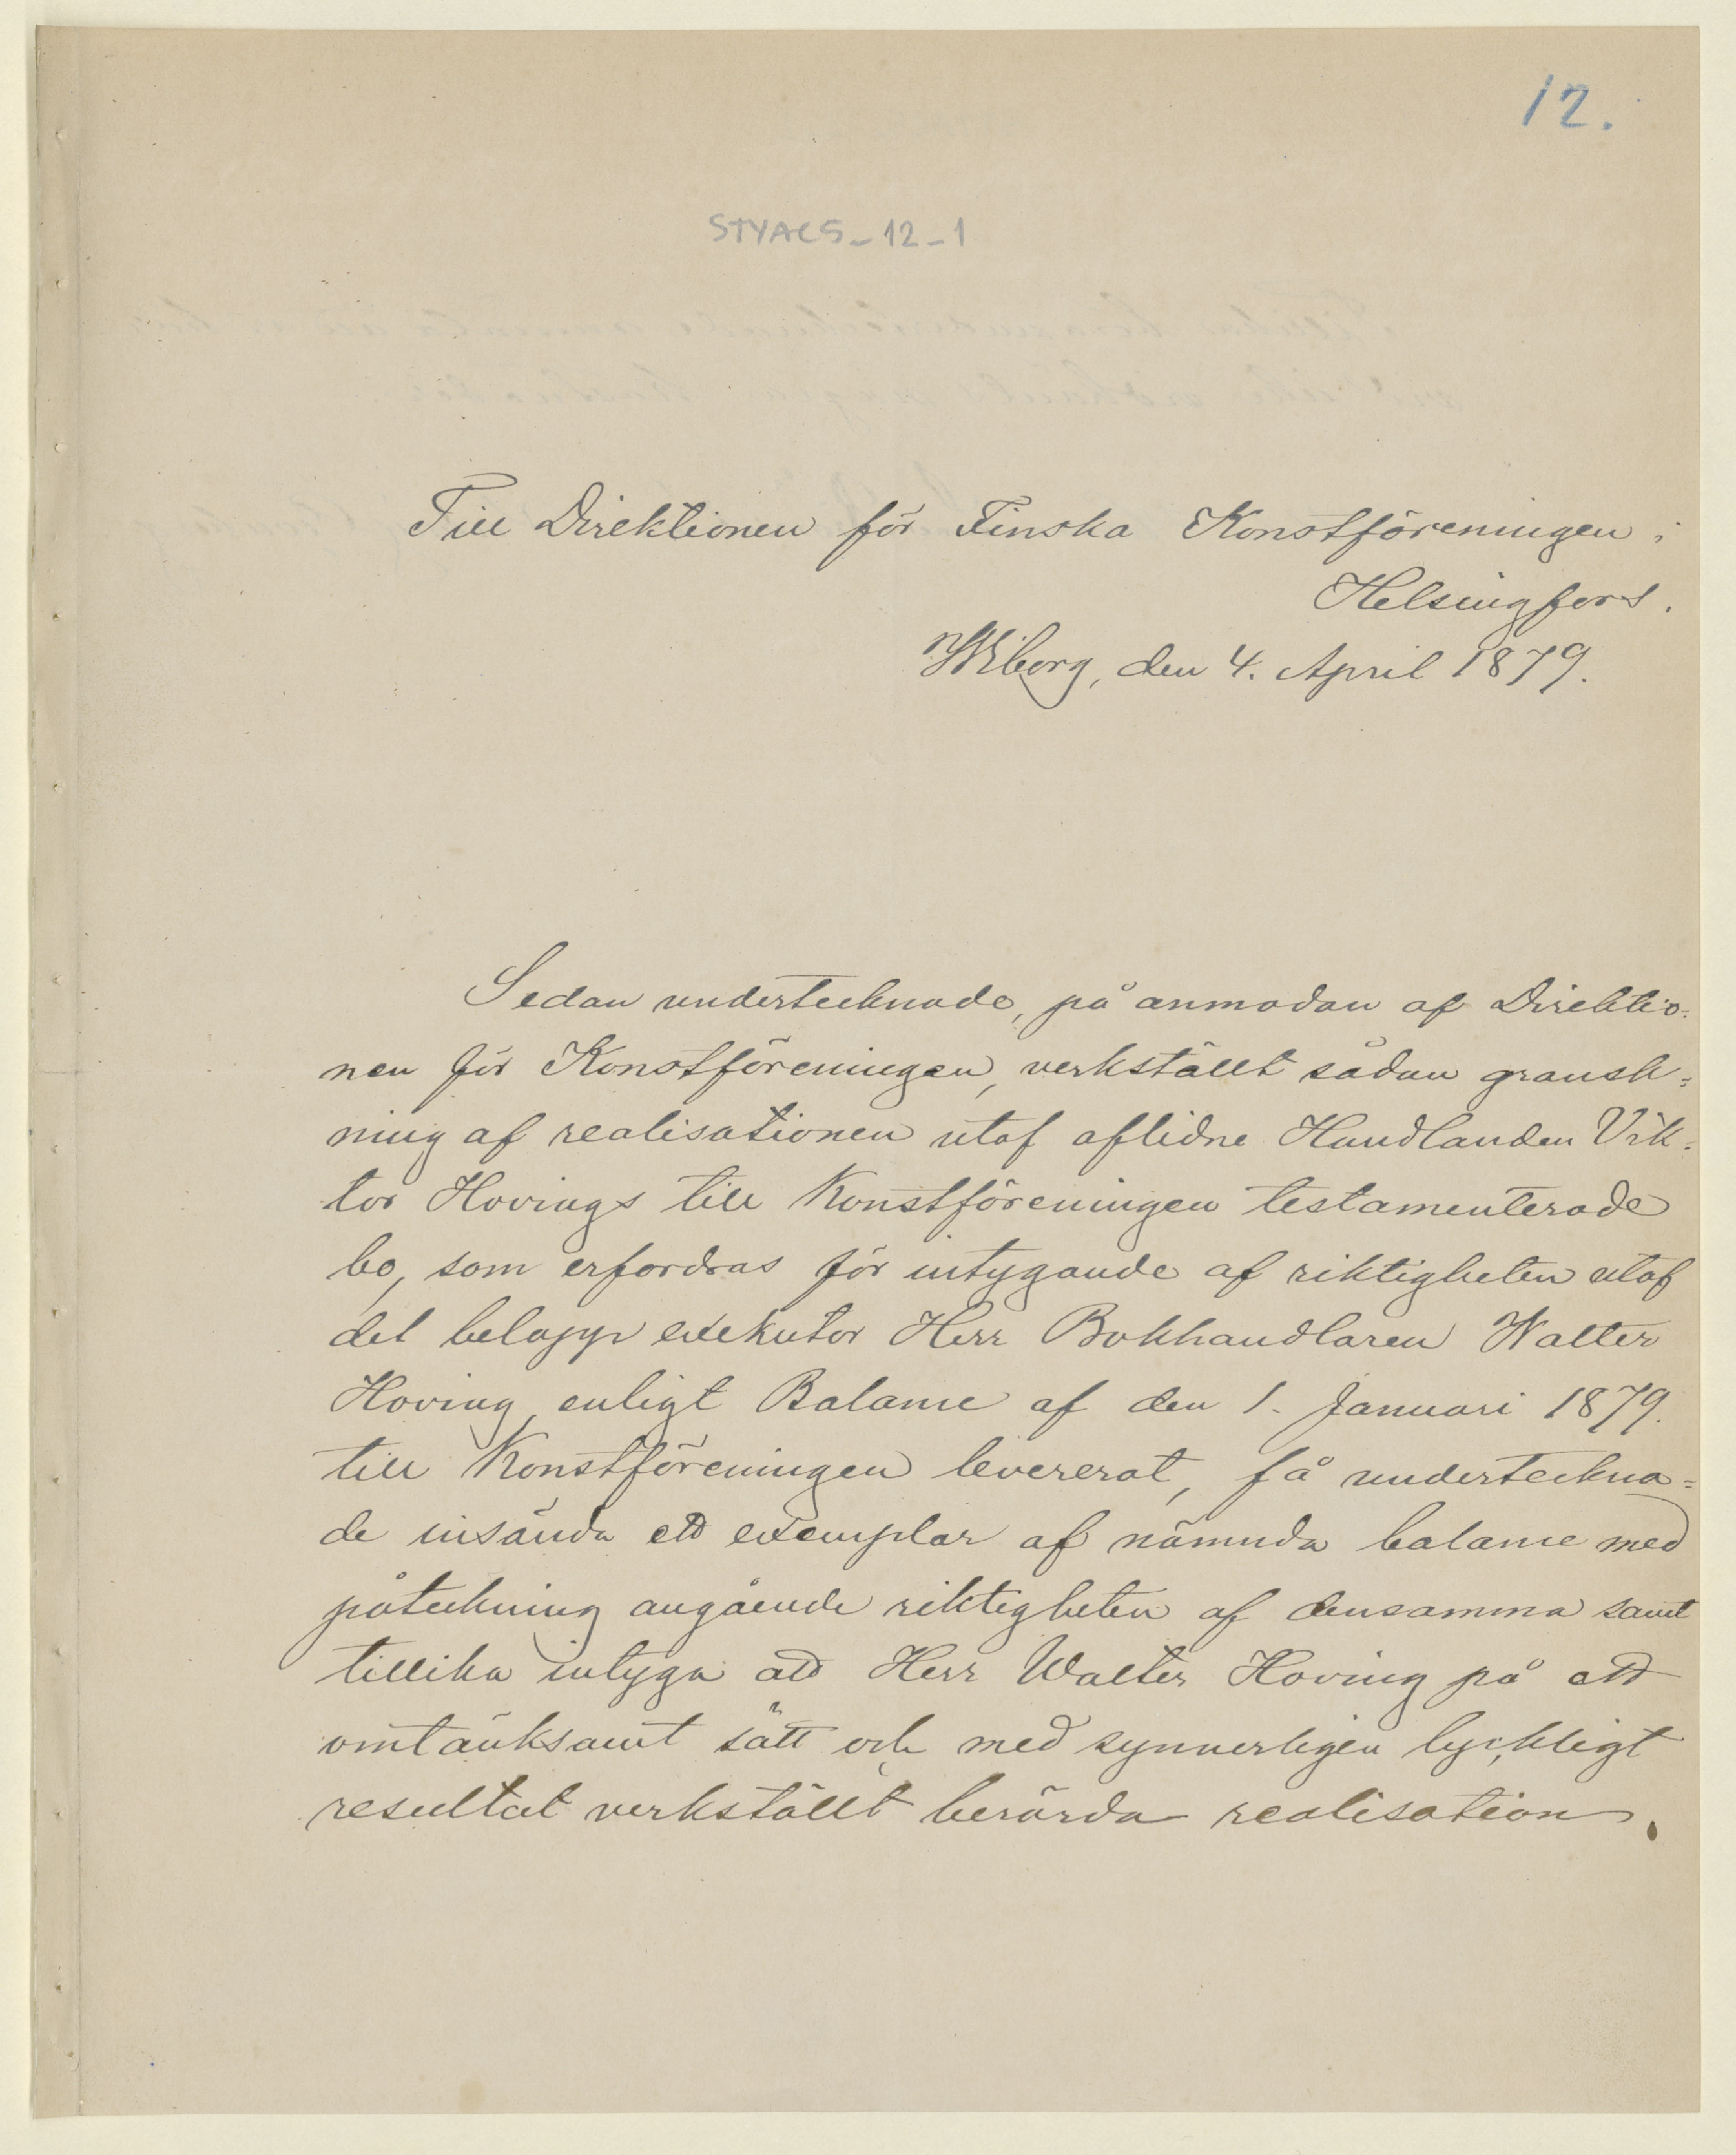 12.
STYAC5_12_1
Till Direktionen för Finska Konstföreningen i
Helsingfors.
Wiborg, den 4. April 1879.
Sedan undertecknade, på anmodan af Direktio-
nen för Konstföreningen, verkställt sådan gransk-
ning af realisationen utaf aflidne Handlanden Vik-
tor Hovings till Konstföreningen testamenterade
bo, som erfordras för intygande af riktigheten utaf
det belopp exekutor Herr Bokhandlaren Walter
Hoving, enligt Balance af den 1. Januari 1879.
till Konstföreningen levererat, få underteckna-
de insända ett exemplar af nämnda balance med
påteckning angående riktigheten af densamma samt
tillika intyga att Herr Walter Hoving på ett
omtänksamt sätt och med synnerligen lyckligt
resultat verkställt berörda realisation.